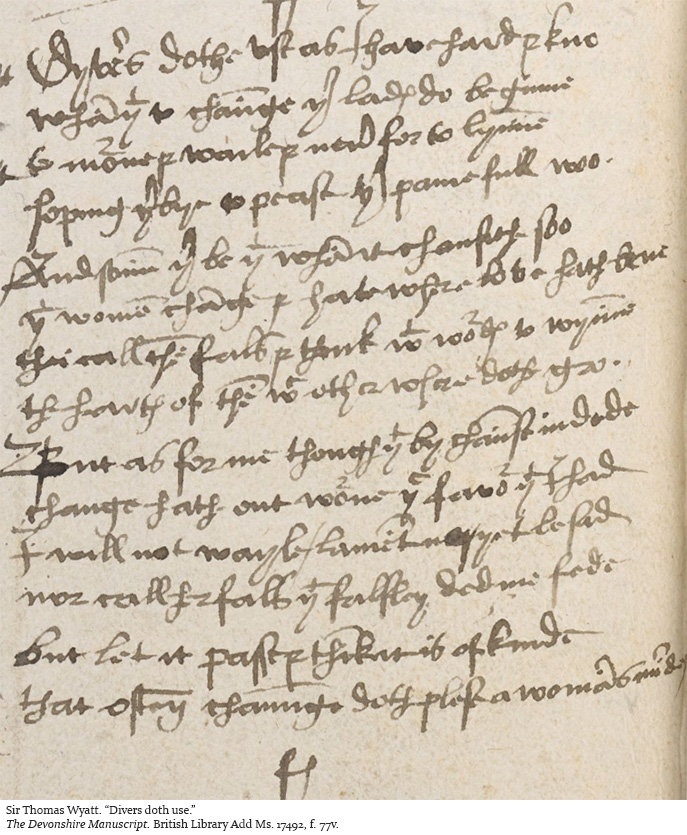 Dyvers dothe vse as I have hard & kno
whan yt to change ther ladys do beginne
to morne & waile & never for to lynne
hoping therbye to pease ther painefull wo.
And some ther be yt whan it chansith soo
yt women change & hate where love hath bene
thei call them fals & think wt wordes to wynne
the hartes of them wt otherwhere doth gro.
But as for me though yt by chanse indede
change hath out worne the favor yt I had
I will not wayle / lament nor yet be sad
nor call her fals yt falsley ded me fede
but let it passe & think it is of kinde
that often chaunge doth plese a womans minde
Sir Thomas Wyatt. “Divers doth use.”
The Devonshire Manuscript. British Library Add Ms. 17492, f. 77v.